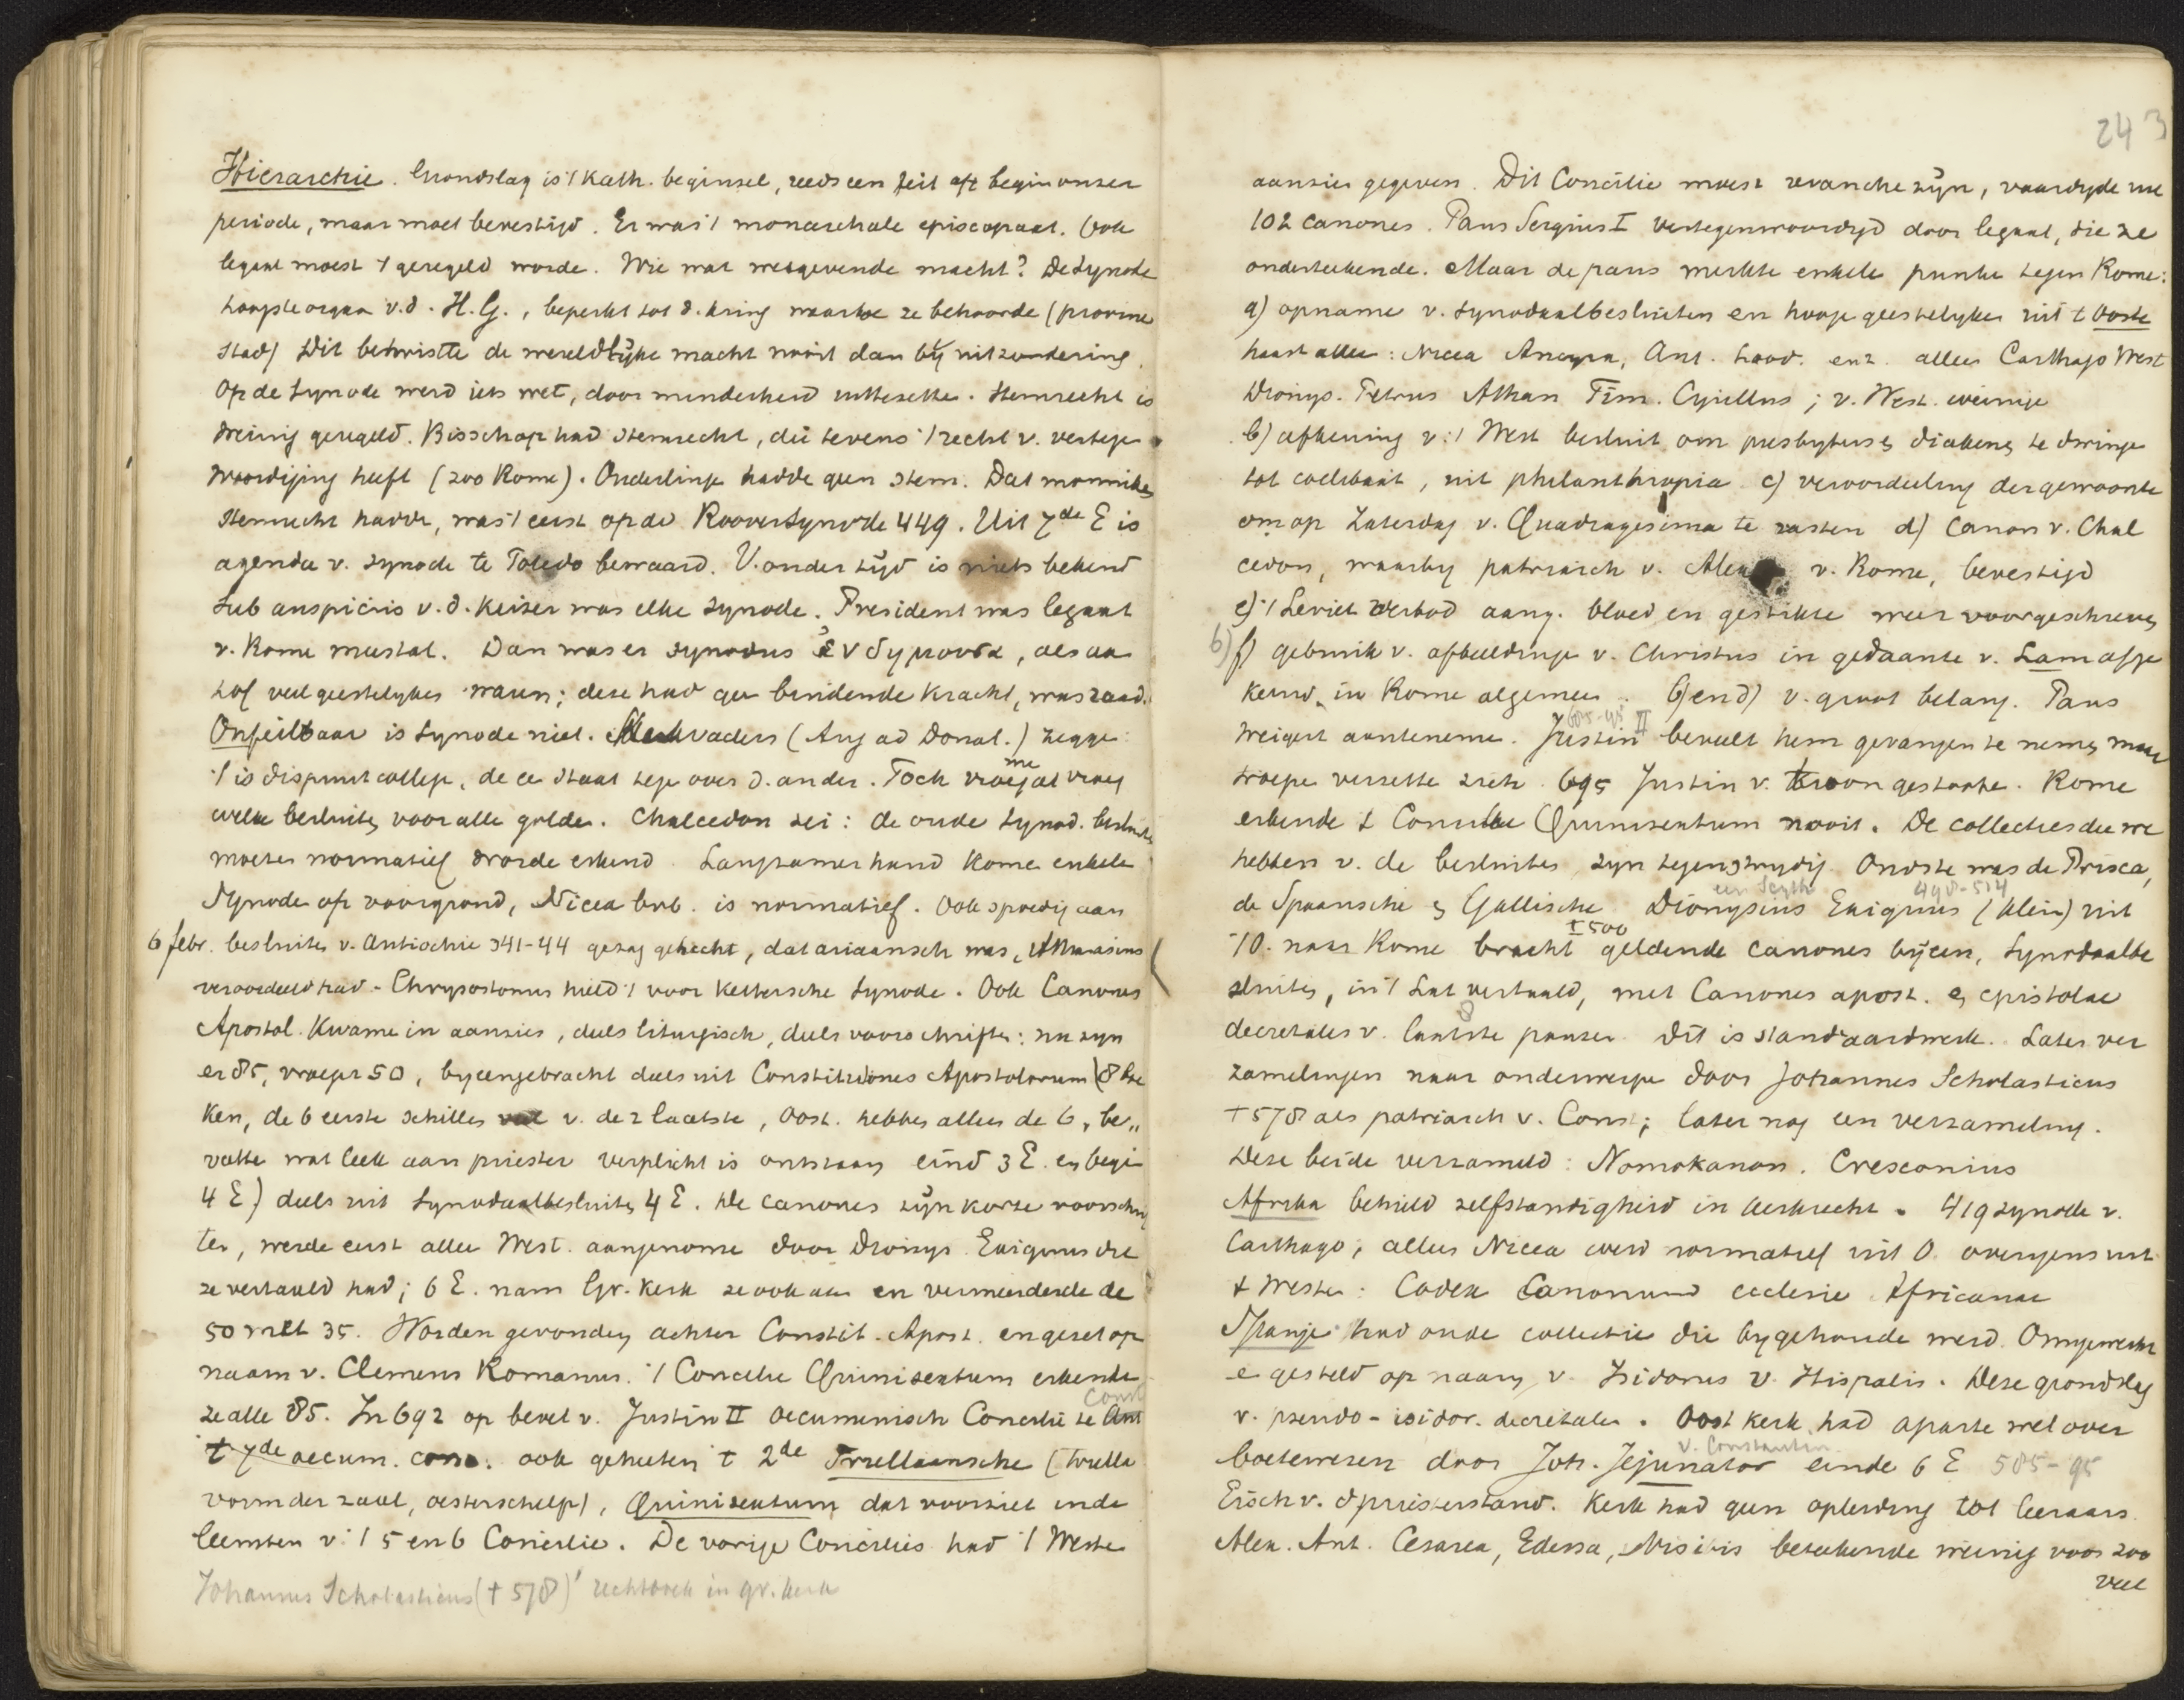 Hierarchie. Grondslag is 't Kath. beginsel, reeds een feit op 't begin onzer
periode, maar moet bevestigd. Er was 't monarchale episcopaat. Ook
legaal moest 't geregeld worde. Wie was wetgevende macht? De Synode
hoogste orgaan v.d. H.G., beperkt tot d. kring waartoe ze behoorde (provincie
stad) Dit betwistte de wereldlijke macht nooit dan bij uitzondering.
Op de Synode werd iets wet, door minderheid Stemrecht is
weinig geregeld. Bisschop had stemrecht, die tevens 't recht v. vertege
woordiging heeft (zoo Rome). Onderlinge hadde geen stem. Dat monniken
stemrecht hadde, was 't eerst op de Rooversynode 449. Uit 7de E is
agenda v. synode te Toledo bewaard. V. ouder tijd is niets bekend
Sub auspiciis v.d. Keizer was elke synode. President was legaat
v. Rome meestal. Dan was er synodus ἐνδημοῦσα, als aa
hof veel geestelykes waren; deze had gee bindende kracht, was raad.
Onfeilbaar is Synode niet. Kerkvaders (Aug ad Donat.) zegge:
't is disputcollege, de ee staat tege over d. ander. Toch vroeg me al vroeg
welke besluiten voor alle golde. Chalcedon zei: de oude Synod. besluite
moeten normatief worde erkend. Langzamerhand kome enkele
Synode op voorgrond, Nicea bvb. is normatief. Ook spoedig aan
6 febr. besluiten v. Antiochie 341-44 gezag gehecht, dat ariaansch was, Athanasius
veroordeeld had. Chrysostomus hield 't voor kettersche Synode. Ook Canones
Apostol. Kwame in aanzien, deels liturgisch, deels voorschrifte: nu zyn
er 85, vroeger 50, byeengebracht deels uit Constitutiones Apostolorum (8 boe
ken, de 6 eerste schillen veel v. de 2 laatste, Oost. hebben alleen de 6, be„
vatte wat leek aan priester verplicht is ontstaan eind 3 E. en begi
4 E) deels uit Synodaalbesluiten 4 E. De canones zijn korte voorschrif
ten, werde eerst allee West. aangenome door Dionys. Exiguus die
ze vertaald had; 6 E. nam Gr. Kerk ze ook aan en vermeerderde de
50 met 35. Worden gevonden achter Constit. Apost. en gezet op
naam v. Clemens Romanus. 't Concilie Quinisextum erkende
ze alle 85. In 692 op bevel v. Justin II oecumenisch Concilie te Ant Const
't 7de oecum. conc. ook geheeten 't 2de Trullaansche (trulla
vorm der zaal, oesterschelp), Quinisextum dat voorziet in de
leemten v. 't 5 en 6 Concilie. De vorige Concilies had 't Weste
Johannes Scholasticus († 578) rechtboek in gr. kerk
243
aanzien gegeven. Dit Concilie moest revanche zijn, vaardigde uit
102 canones. Paus Sergius I vertegenwoordigd door legaat, die ze
onderteekende. Maar de paus merkte enkele punte tegen Rome:
a) opname v. synodaalbesluiten en hooge geestelyken uit 't Ooste
haast allee: Nicea Ancyra, Ant. Laod. enz. alleen Carthago West
Dionys. Petrus Athan Tim. Cyrillus; v. West. weinige
b) afkeuring v. 't West besluit om presbyters en diakens te dwinge
tot coelibaat, uit philanthropia c) veroordeeling der gewoonte
om op Zaterdag v. Quadragesima te vasten d) Canon v. Chal
cedon, waarby patriarch v. Alex v. Rome, bevestigd
e) 't Leviet verbod aang. bloed en gestikte weer voorgeschreven
6) f) gebruik v. afbeeldinge v. Christus in gedaante v. Lam afge
keurd, in Rome algemee. b) en d) v. groot belang. Paus
weigert aanteneme. Justin II 685-95 beveelt hem gevangen te nemen maar
troepe verzette zich. 695 Justin v. troon gestoote. Rome
erkende 't Concilie Quinisextum nooit. De collecties die we
hebben v. de besluiten zyn tegenstrydig. Oudste was de Prisca,
de Spaansche en Gallische. Dionysius Exiguus een Scyth 498-514 (klein) uit
't O. naar Rome bracht ±500 geldende canones bijeen, Synodaalbe
sluiten, in 't Lat vertaald, met Canones apost. en epistolae
decretales v. laatste 8 pausen. Dit is standaardwerk. Later ver
zamelingen naar onderwerpe door Johannes Scholasticus
†578 als patriarch v. Const; later nog een verzameling.
Deze beide verzameld: Nomokanon. Cresconius
Afrika behield zelfstandigheid in kerkrecht. 419 synode v.
Carthago; alleen Nicea werd normatief uit O. overigens uit
't Weste: Codex Canonum ecclesie Africanae
Spanje had oude collectie die bygehoude werd. Omgewerkt
e gesteld op naam v. Isidorus v. Hispalis. Deze grondslag
v. pseudo-isidor. decretale. Oost kerk had aparte wet over
boetewezen door Joh. Jejunator v. Constantin. einde 6 E 585-95
Eisch v. d priesterstand. Kerk had geen opleiding tot leeraars.
Alex. Ant. Cesarea, Edessa, Nisibis beteekende weinig voor zoo
veel